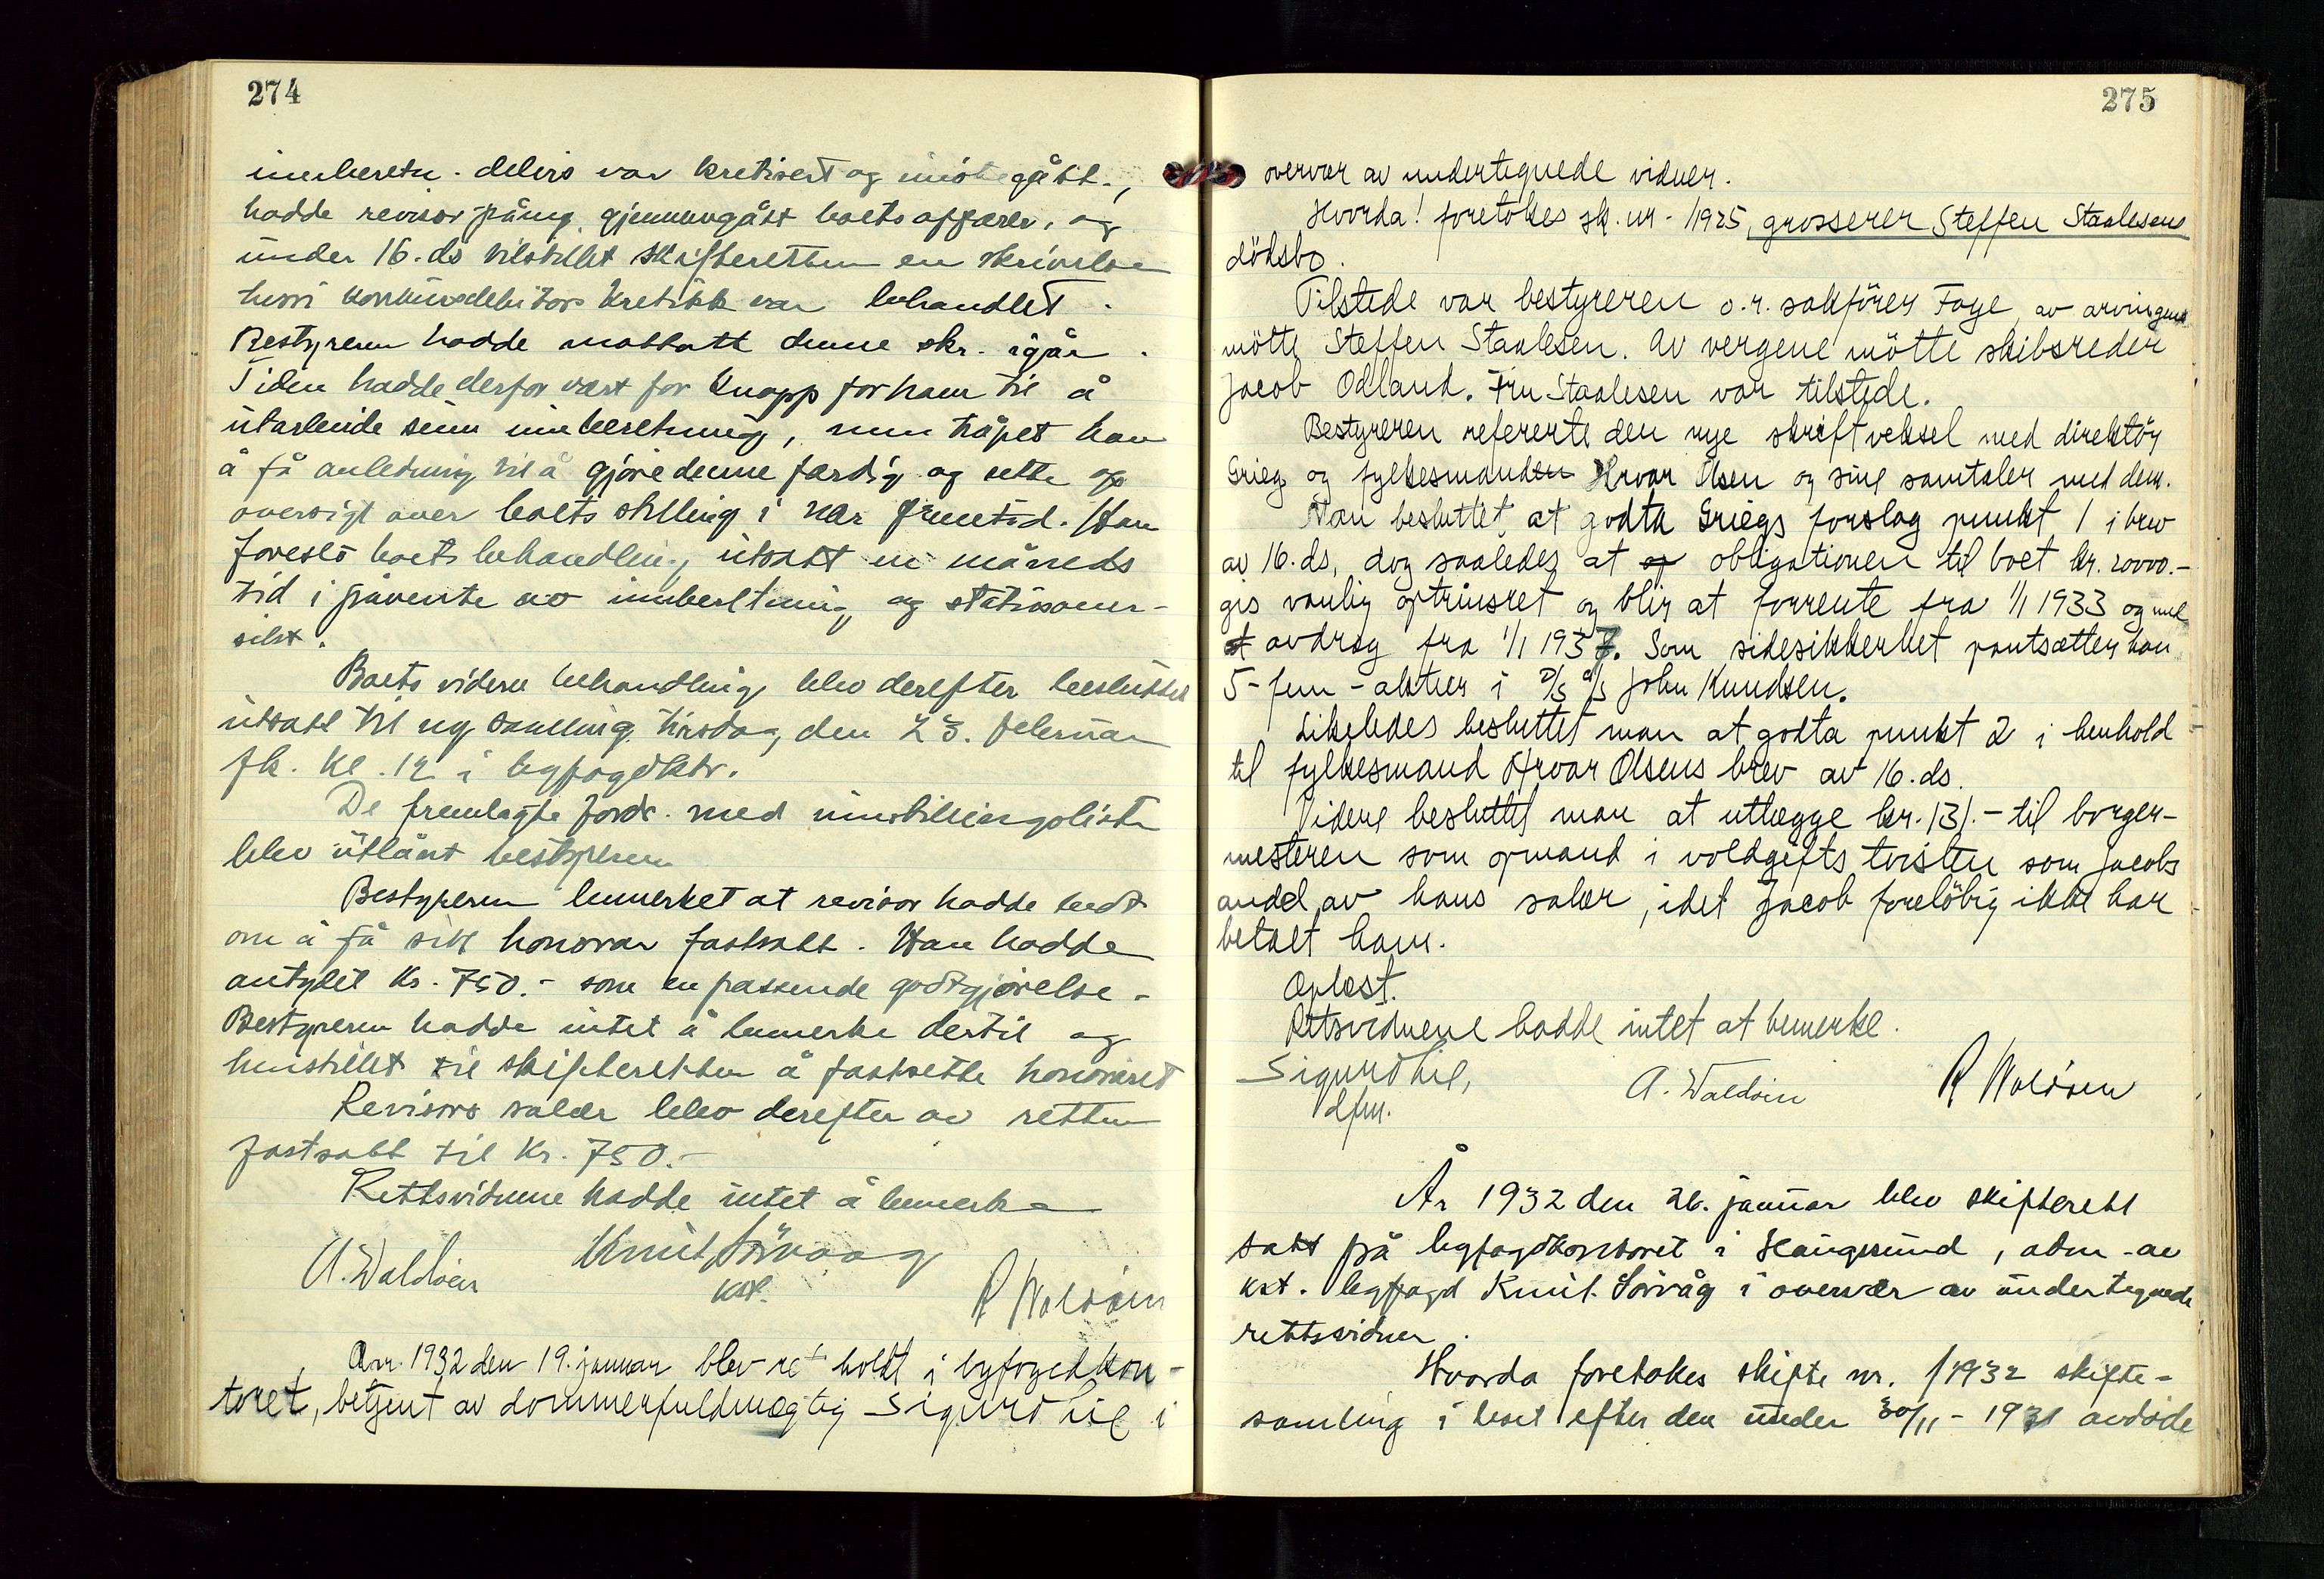 274
innberetn. delvis var kretisert og imötegått,
hadde revisor påny gjennemgått boets affærer, og
under 16. ds tilstillet skifteretten en skrivelse
hvori konkursdebitors kretikk var behandlet.
Bestyreren hadde mottatt denne skr. igår.
Tiden hadde derfor vært for knapp for ham til å
utarbeide sinn innberetning, men håpet han
å få anledning til å gjøre denne færdig og sette op
oversigt over boets stilling i nær fremtid. Han
foreslo boets behandling utsatt en måneds
tid i påvente av innberetning og statusover-
sikt.
Boets videre behandling blev derefter besluttet
utsatt til ny samling tirsdag den 23. februar
fk. kl. 12 i byfogdktr.
De fremlagte ford. med innstillingsliste
blev utlånt bestyreren
Bestyreren bemerket at revisor hadde bedt
om å få sitt honorar fastsatt. Han hadde
antydet kr. 750.- som en passende godtgjørelse.
Bestyreren hadde intet å bemerke dertil og
henstillet til skifteretten å fastsette honoraret
Revisors salær blev derefter av retten
fastsatt til kr. 750.-
Rettsvidnene hadde intet å bemerke
A. Waldöen Knut Sörvaag R Woldöen
kst.
Aar 1932 den 19. januar blev ret holdt i byfogedkon-
toret, betjent av dommerfuldmægtig Sigurd Lie i
275
overvær av undertegnede vidner.
Hvorda! foretokes sk. nr - 1/1925, grosserer Steffen Staalesens
dödsbo.
Tilstede var bestyreren o.r. sakförer Foye, av arvingene
mötte Steffen Staalesen. Av vergene mötte skibsreder
Jacob Odland. Fru Staalesen var tilstede.
Bestyreren refererte den nye skriftveksel med direktör
Grieg og fylkesmanden Hroar Olsen og sine samtaler med dem.
Man besluttet at godta Griegs forslag punkt 1 i brev
av 16. ds, dog saaledes at obligationen til boet kr. 20000.-
gis vanlig optrinsret og blir at forrente fra 1/1 1933 og med
avdrag fra 1/1 1937. Som sidesikkerhet pantsætter han
5 - fem - aktier i D/S A/S John Knudsen.
Likeledes besluttet man at godta punkt 2 i henhold
til fylkesmand Hroar Olsens brev av 16. ds.
Videre besluttet man at utlægge kr. 131.- til borger-
mesteren som opmand i voldgifts tvisten som Jacobs
andel av hans salær, idet Jacob foreløbig ikke har
betalt ham.
Oplæst.
Rettsvidnene hadde intet at bemerke.
Sigurd Lie, A. Waldöen R Woldöen
dfm.
År 1932 den 26. januar blev skifterett
satt på byfogdkontoret i Haugesund, adm. av
kst. byfogd Knut Sörvåg i overvær av undertegnede
rettsvidner.
Hvorda foretokes skifte nr. 1/1932 skifte-
samling i boet efter den under 30/11 - 1931 avdøde